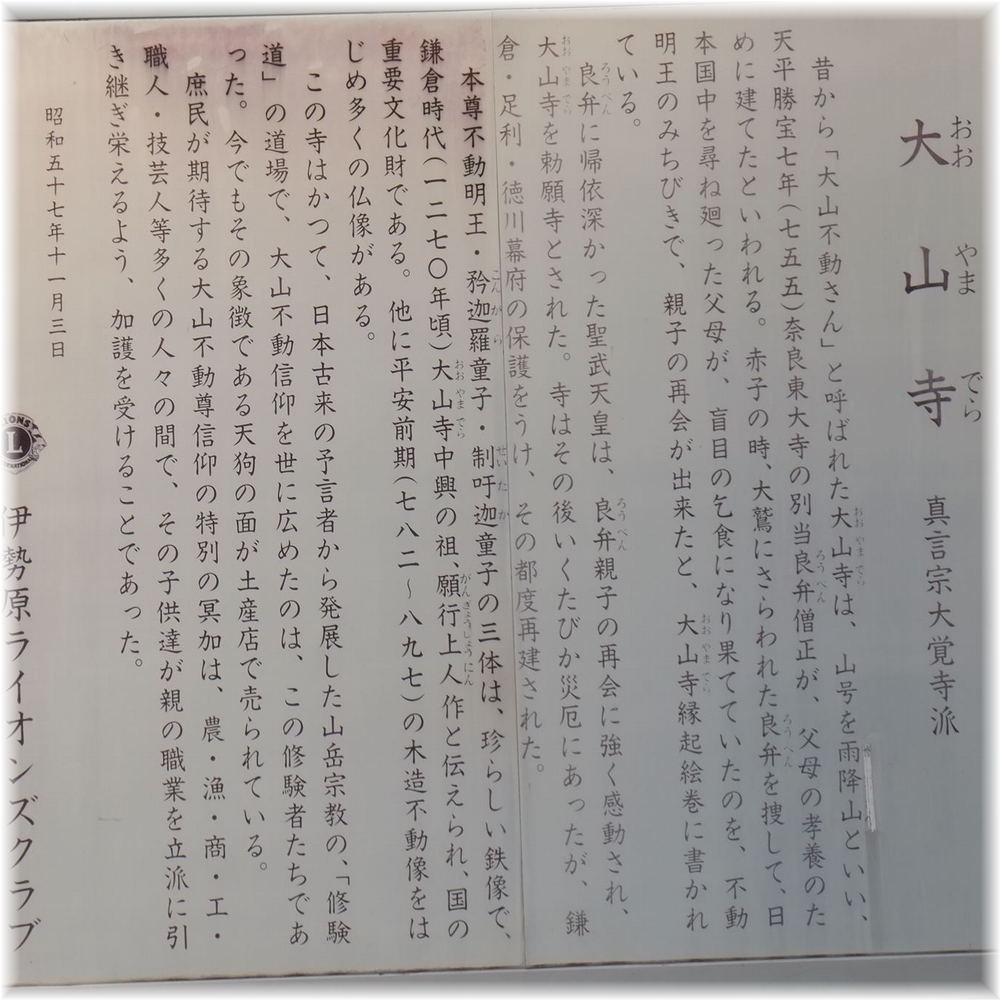 大山寺 真言宗大覚寺派
おお やま でら
昔から「大山不動さん」と呼ばれた大山寺は、山号を雨降山といい、
天平勝宝七年(七五五)奈良東大寺の別当良弁僧正が、父母の孝養のた
めに建てたといわれる。赤子の時、大鷲にさらわれた良弁を捜して、日
本国中を尋ね廻った父母が、盲目の乞食になり果てていたのを、不動
明王のみちびきで、親子の再会が出来たと、大山寺縁起絵巻に書かれ
ている。
良弁に帰依深かった聖武天皇は、良弁親子の再会に強く感動され、
大山寺を勅願寺とされた。寺はその後いくたびか災厄にあったが、鎌
倉・足利・徳川幕府の保護をうけ、その都度再建された。
本尊不動明王・矜迦羅童子・制吒迦童子の三体は、珍らしい鉄像で、
鎌倉時代(一二七〇年頃)大山寺中興の祖、願行上人作と伝えられ、国の
重要文化財である。他に平安前期(七八二〜八九七)の木造不動像をは
じめ多くの仏像がある。
この寺はかつて、日本古来の予言者から発展した山岳宗教の、「修験
道」の道場で、大山不動信仰を世に広めたのは、この修験者たちであ
った。今でもその象徴である天狗の面が土産店で売られている。
庶民が期待する大山不動尊信仰の特別の冥加は、農・漁・商・工・
職人・技芸人等多くの人々の間で、その子供達が親の職業を立派に引
き継ぎ栄えるよう、加護を受けることであった。
昭和五十七年十一月三日
LIONS
L
伊勢原ライオンズクラブ